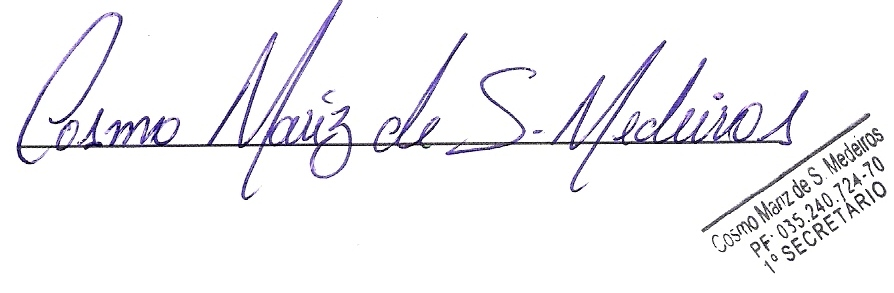 Cosmo Mariz de S. Medeiros
Cosmo Mariz de S. Medeiros
PF: 035.240.724-70
1º SECRETARIO